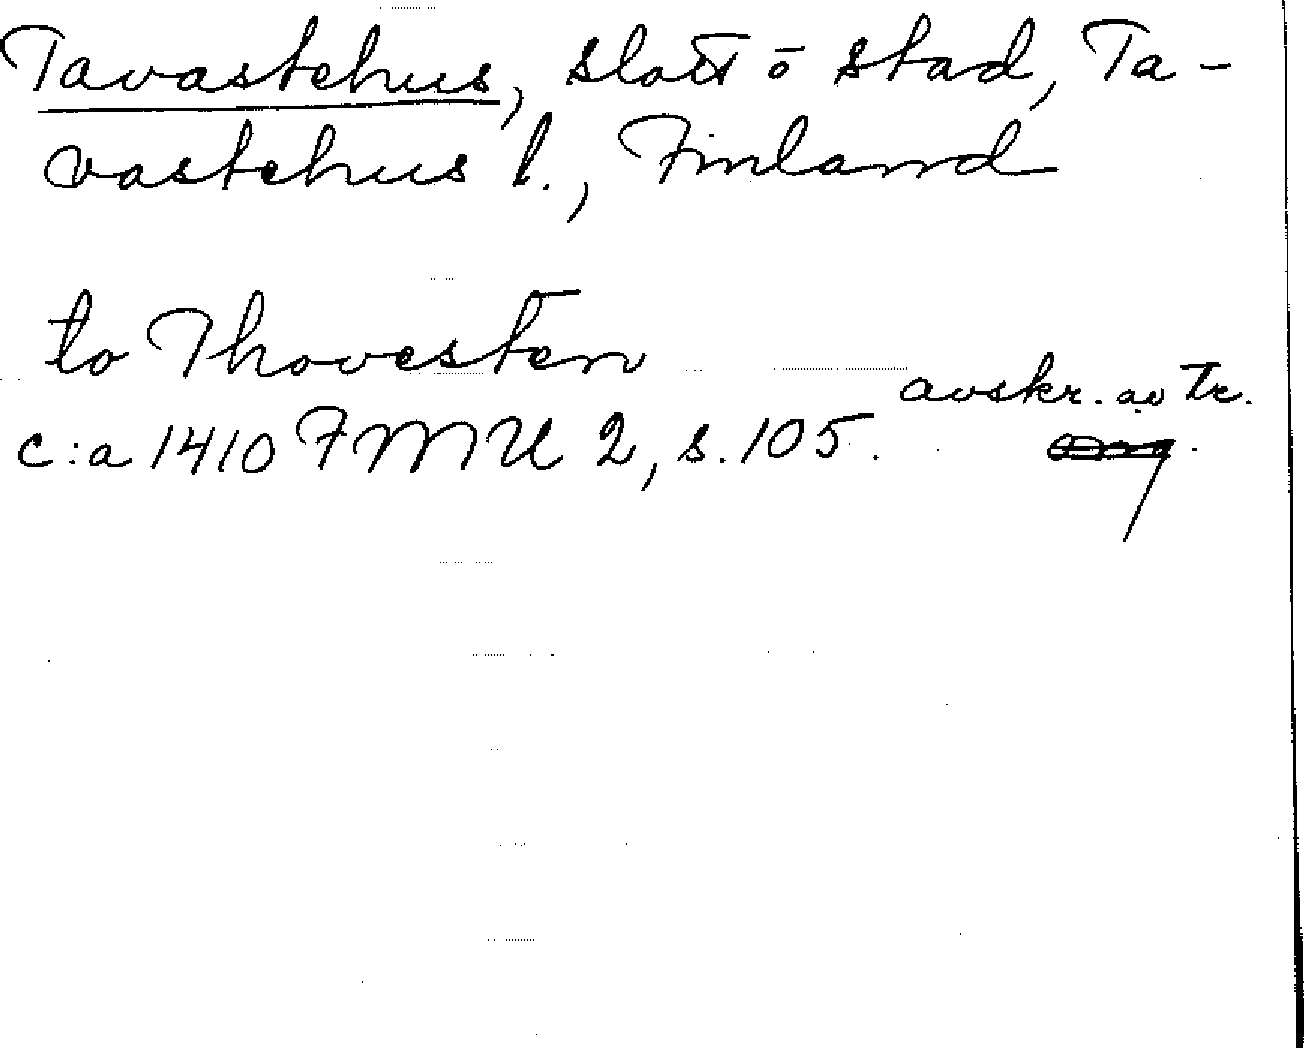 Tavastehus, slott o stad, Ta-
vastehus l., Finland
to Thovesten
c:a 1410 FMU 2, s. 105. avskr. av Tr.